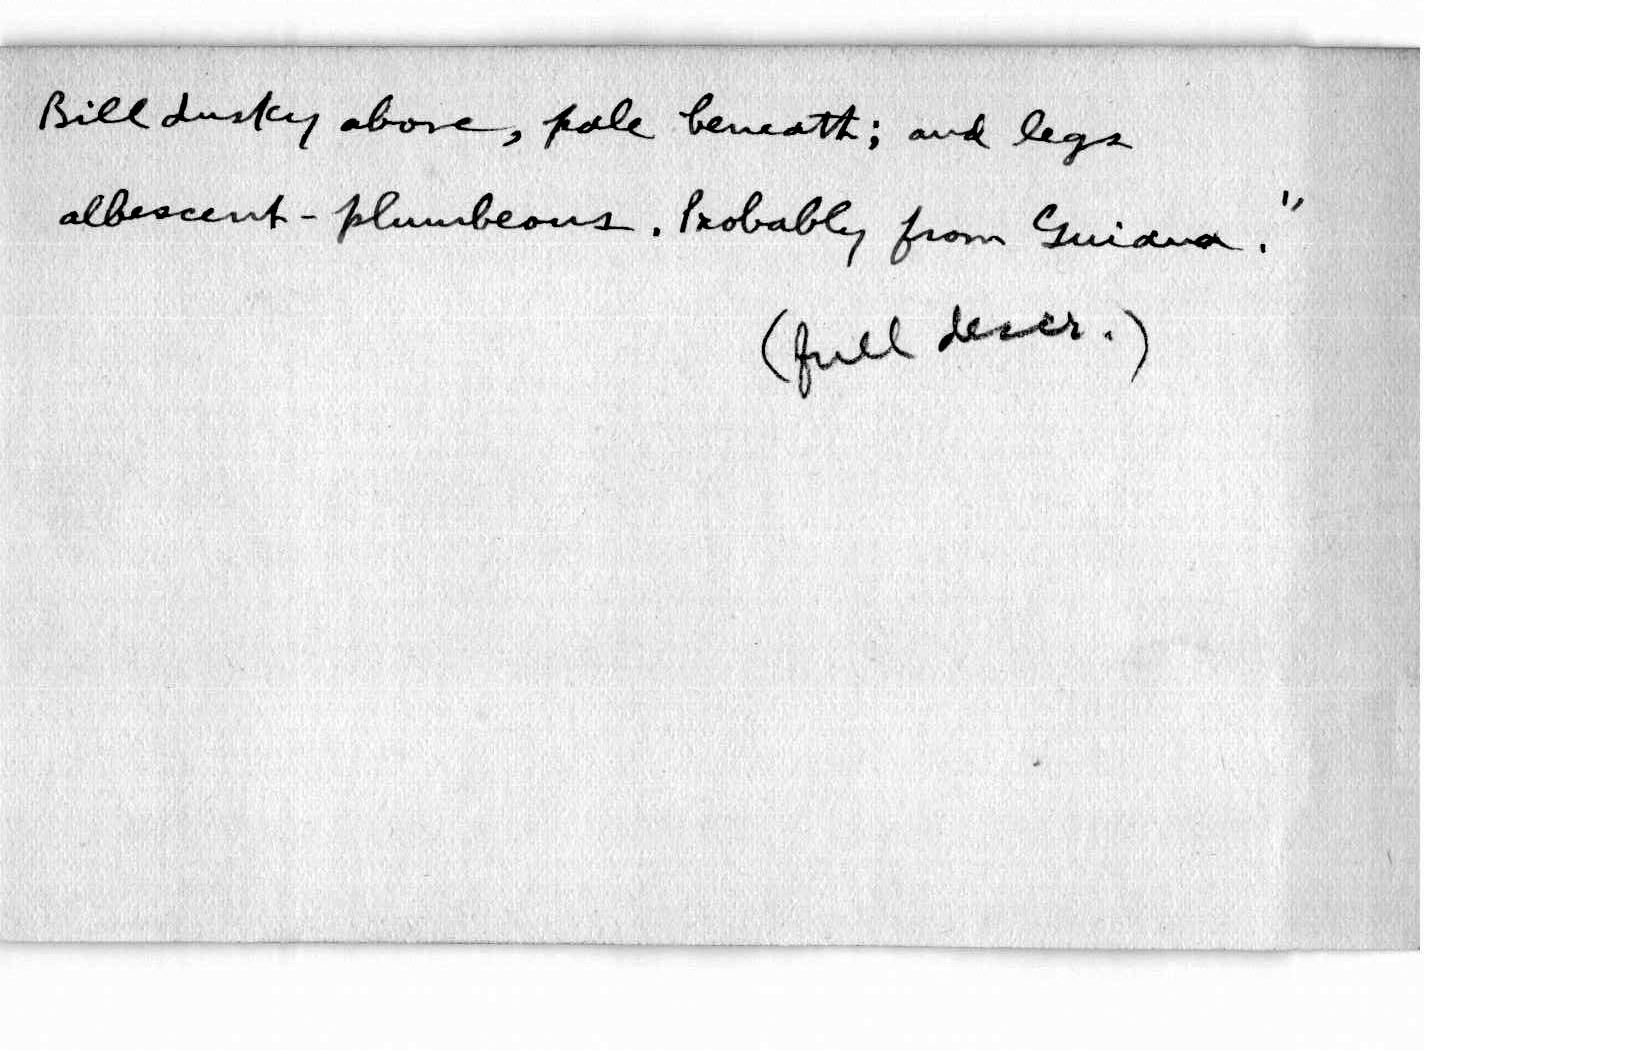 Bill dusky above, pale beneath; and legs
albescent-plumbeous. Probably from Guiana."
(full descr.)